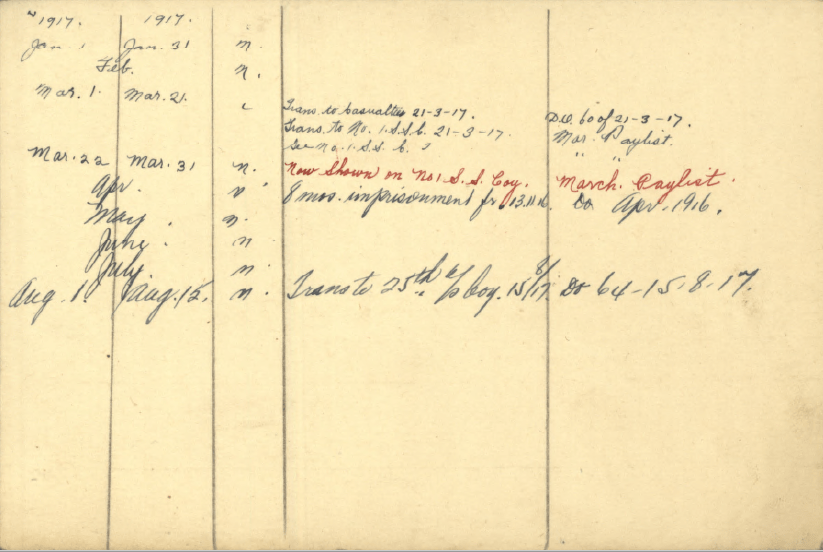 1917. 1917.
Jan 1 Jan. 31 n.
Feb. n.
Mar. 1. Mar. 21. Trans. to Casualties 21-3-17. D.O. 60 of 21-3-17.
Trans. to No. 1. S.S.C. 21-3-17. Mar. Paylist.
See No. 1. S.S.C. " "
Mar. 22 Mar. 31 n. Now Shown on No 1 S. S. Coy. March. Paylist.
Apr. n 8 mos. imprisonment fr. 13.11.16. Do Apr. 1916.
May. n.
June. n
July. n.
Aug. 1. Aug. 15. n. Trans to 25th Coy. 15/8/17. Do 64-15-8-17.